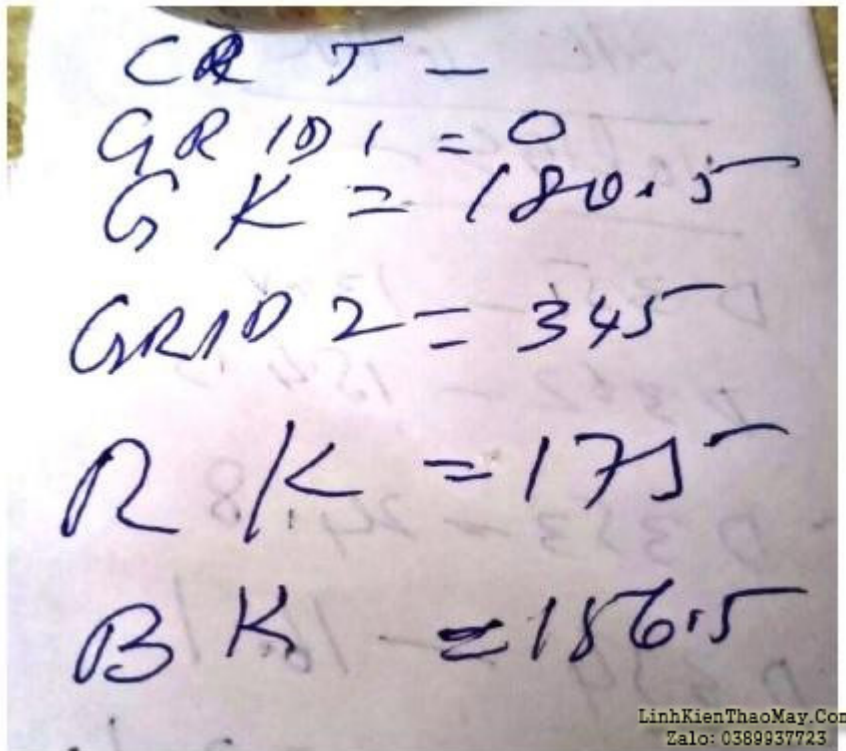 CRT -
GRID 1 = 0
GK = 180.5
GRID 2 = 345
RK = 175
BK = 156.5
LinhKienThaoMay.Com
Zalo: 0389937723